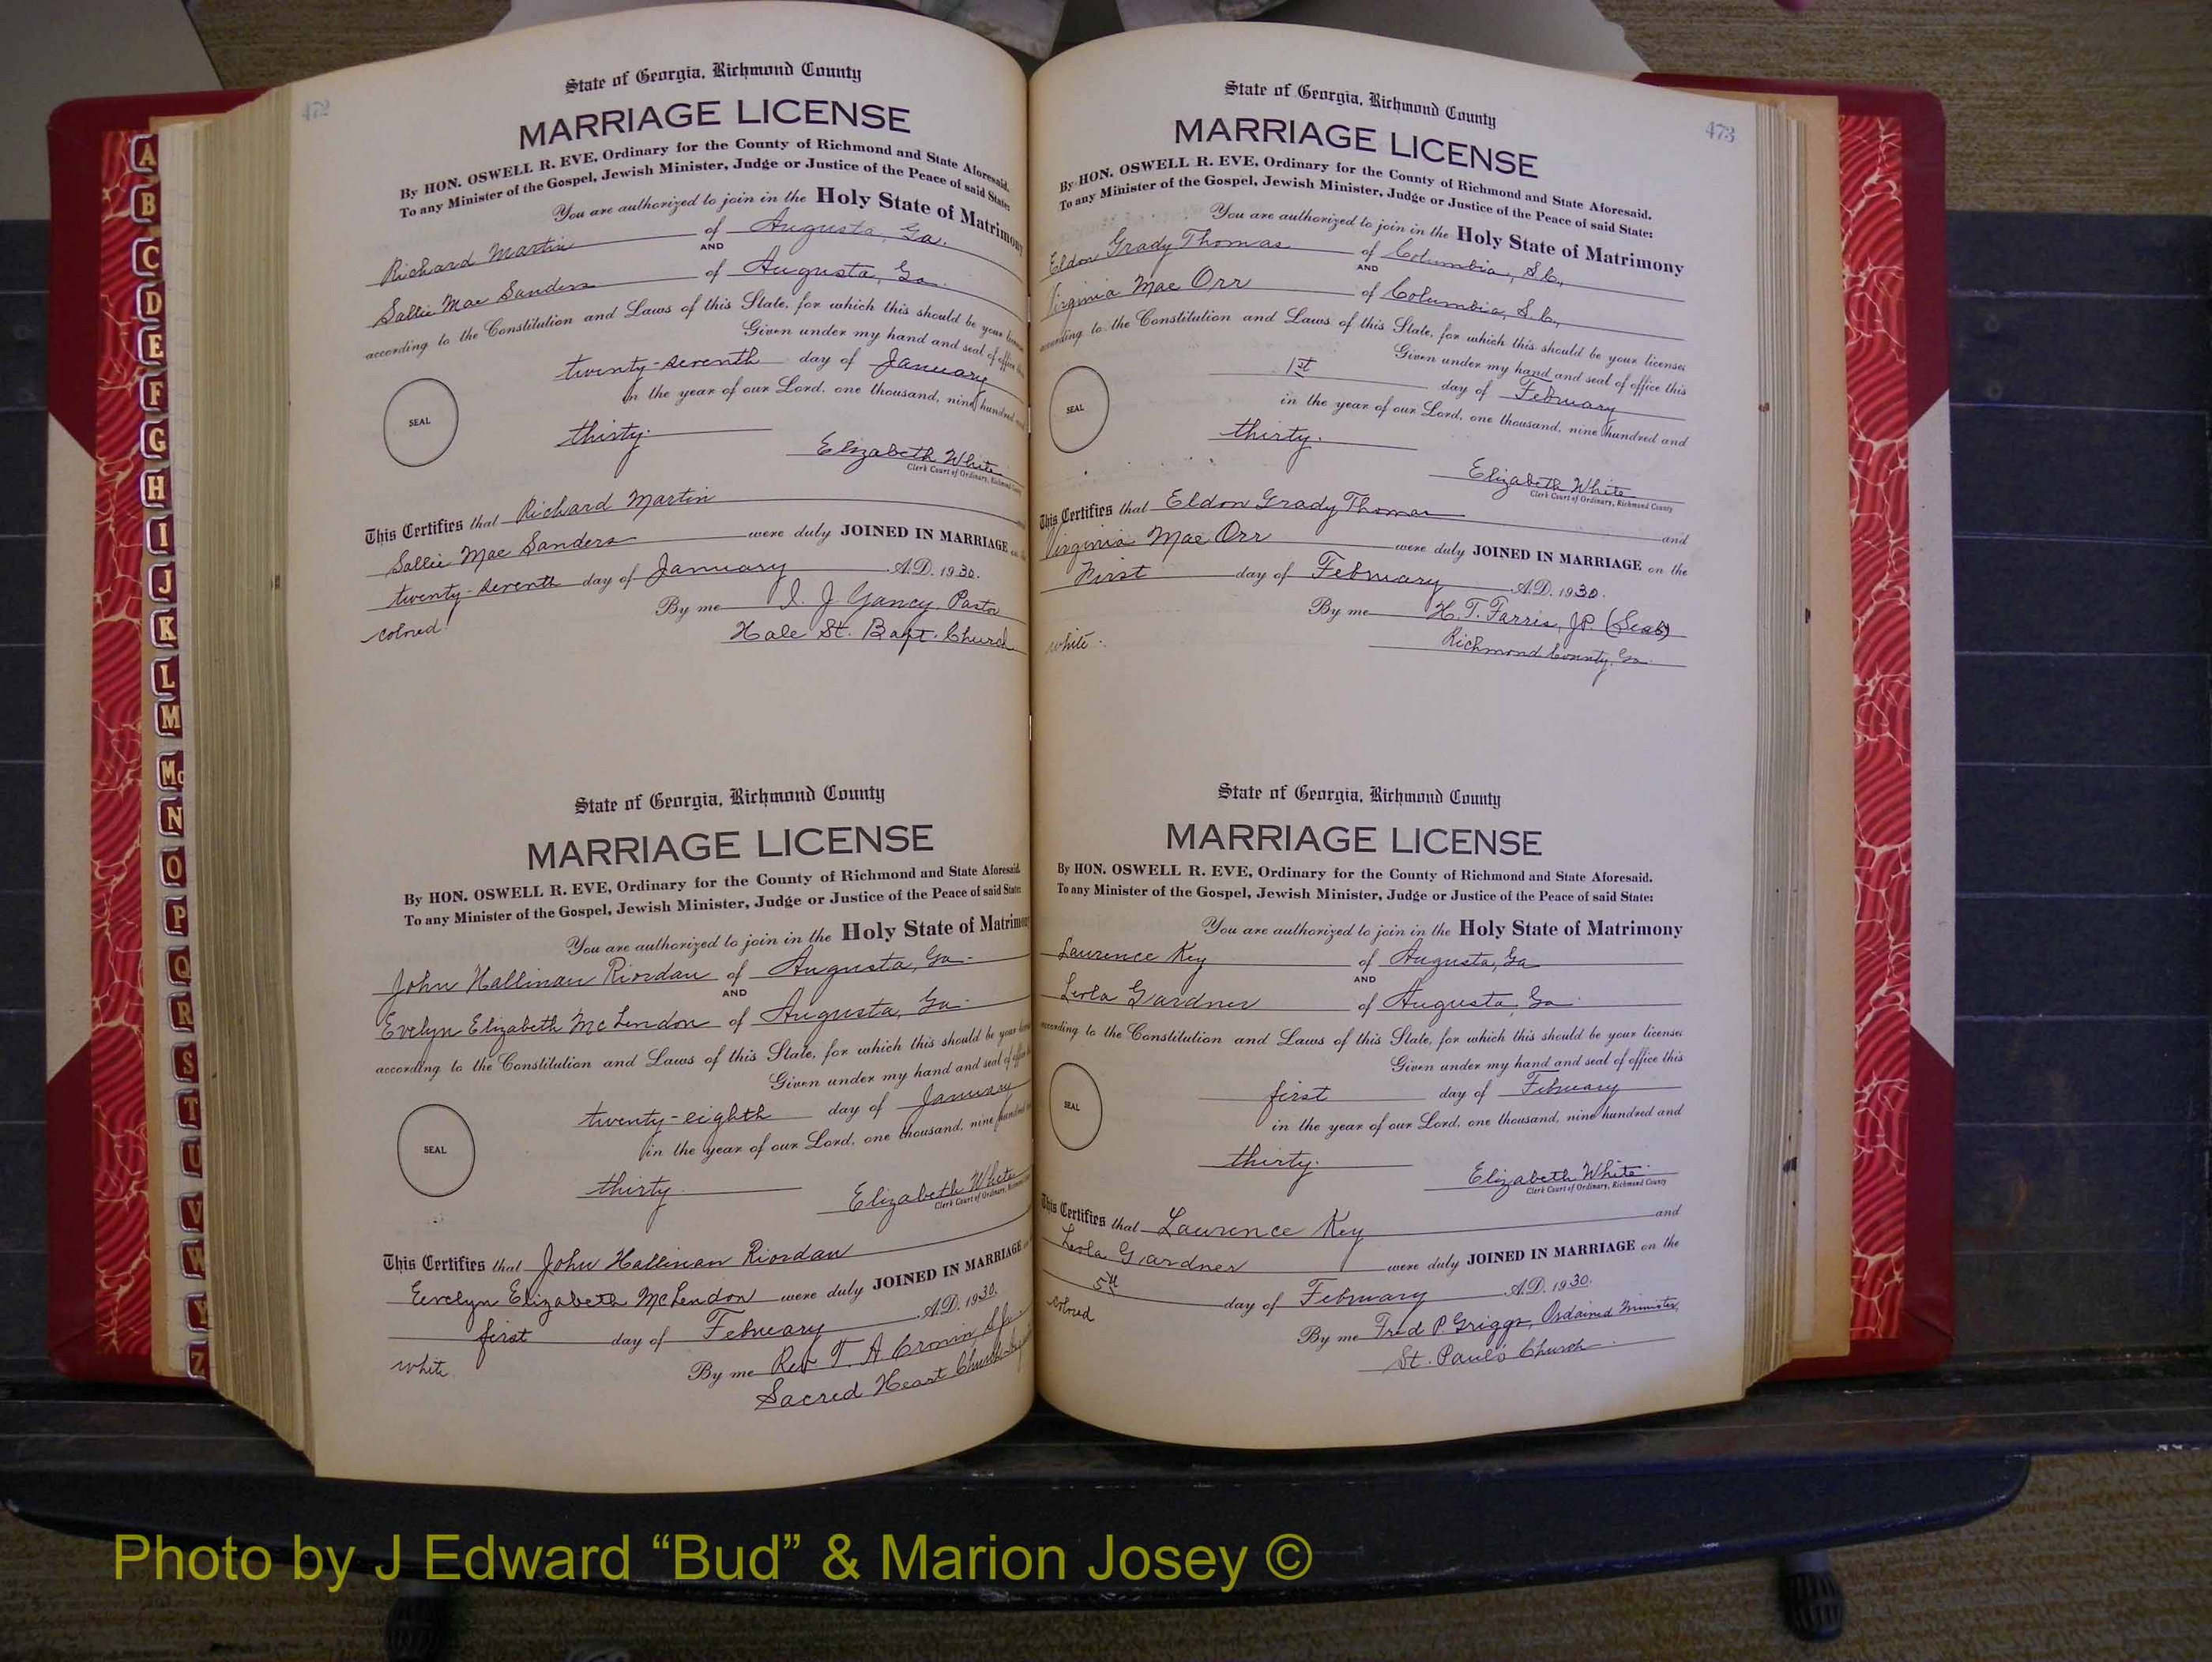 472
State of Georgia, Richmond County
MARRIAGE LICENSE
By HON. OSWELL R. EVE, Ordinary for the County of Richmond and State Aforesaid.
To any Minister of the Gospel, Jewish Minister, Judge or Justice of the Peace of said State:
You are authorized to join in the Holy State of Matrimony
Richard Martin of Augusta, Ga.
AND
Sallie Mae Sanders of Augusta, Ga.
according to the Constitution and Laws of this State, for which this should be your
Given under my hand and seal of office
twenty-seventh day of January
in the year of our Lord, one thousand, nine hundred
SEAL
thirty.
Elizabeth White
Clerk Court of Ordinary, Richmond County
This Certifies that Richard Martin
Sallie Mae Sanders were duly JOINED IN MARRIAGE
twenty-seventh day of January A.D. 1930.
By me I. J. Yancy Pastor
colored
Hale St. Bapt. Church
State of Georgia, Richmond County
MARRIAGE LICENSE
By HON. OSWELL R. EVE, Ordinary for the County of Richmond and State Aforesaid.
To any Minister of the Gospel, Jewish Minister, Judge or Justice of the Peace of said State:
You are authorized to join in the Holy State of Matrimony
John Hallinan Riordan of Augusta, Ga.
AND
Evelyn Elizabeth McLendon of Augusta, Ga.
according to the Constitution and Laws of this State, for which this should be your
Given under my hand and seal of
twenty-eighth day of January
in the year of our Lord, one thousand, nine hundred
SEAL
thirty
Elizabeth White
Clerk Court of Ordinary,
This Certifies that John Hallinan Riordan
Evelyn Elizabeth McLendon were duly JOINED IN MARRIAGE
first day of February A.D. 1930.
white
By me Rev. T A Cronin
Sacred Heart Church
473
State of Georgia, Richmond County
MARRIAGE LICENSE
By HON. OSWELL R. EVE, Ordinary for the County of Richmond and State Aforesaid.
To any Minister of the Gospel, Jewish Minister, Judge or Justice of the Peace of said State:
You are authorized to join in the Holy State of Matrimony
Eldon Grady Thomas of Columbia, S.C.,
AND
Virginia Mae Orr of Columbia, S.C.,
according to the Constitution and Laws of this State, for which this should be your license
Given under my hand and seal of office this
1st day of February
in the year of our Lord, one thousand, nine hundred and
SEAL
thirty.
Elizabeth White
Clerk Court of Ordinary, Richmond County
This Certifies that Eldon Grady Thomas and
Virginia Mae Orr were duly JOINED IN MARRIAGE on the
First day of February A.D. 1930.
By me H. T. Farris, J.P. (Seal)
white
Richmond County, Ga.
State of Georgia, Richmond County
MARRIAGE LICENSE
By HON. OSWELL R. EVE, Ordinary for the County of Richmond and State Aforesaid.
To any Minister of the Gospel, Jewish Minister, Judge or Justice of the Peace of said State:
You are authorized to join in the Holy State of Matrimony
Laurence Key of Augusta, Ga
AND
Leola Gardner of Augusta, Ga.
according to the Constitution and Laws of this State, for which this should be your license
Given under my hand and seal of office this
first day of February
in the year of our Lord, one thousand, nine hundred and
SEAL
thirty.
Elizabeth White
Clerk Court of Ordinary, Richmond County
This Certifies that Laurence Key and
Leola Gardner were duly JOINED IN MARRIAGE on the
5th day of February A.D. 1930.
colored
By me Fred P. Griggs, Ordained Minister,
St. Paul's Church
A
B
C
D
E
F
G
H
I
J
K
L
M
Mc
N
O
P
Q
R
S
T
U
V
W
Y
Z
Photo by J Edward “Bud” & Marion Josey ©